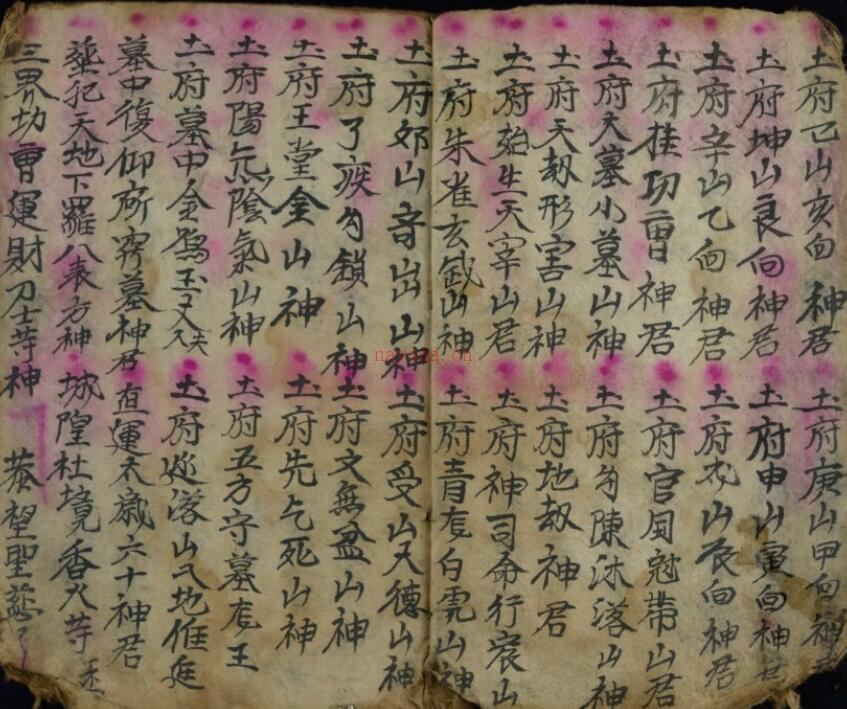 土府巳山亥向神君 土府庚山甲向神君
土府坤山艮向神君 土府申山寅向神君
土府辛山乙向神君 土府戌山辰向神君
土府挂功曹神君 土府官國冠帶山君
土府大墓小墓山神 土府勾陳沐落山神
土府天刼形害山神 土府地刼神君
土府始生天宰山君 土府神司命行衰山
土府朱雀玄武山神 土府青龙白虎山神
土府邜山音出山神 土府受山天德山神
土府了疾勾鎖山神 土府文無盆山神
土府王堂金山神 土府先亡死山神
土府陽炁陰氣山神 土府五方守墓龙王
土府墓中金 玉 土府 落山 地
墓中復仰所穿墓神君 值運太歲六十神君
塟犯天地下羅八表方神 城隍社境香火等
三界功曹運財力士等神 恭望聖慈
nayona.cn